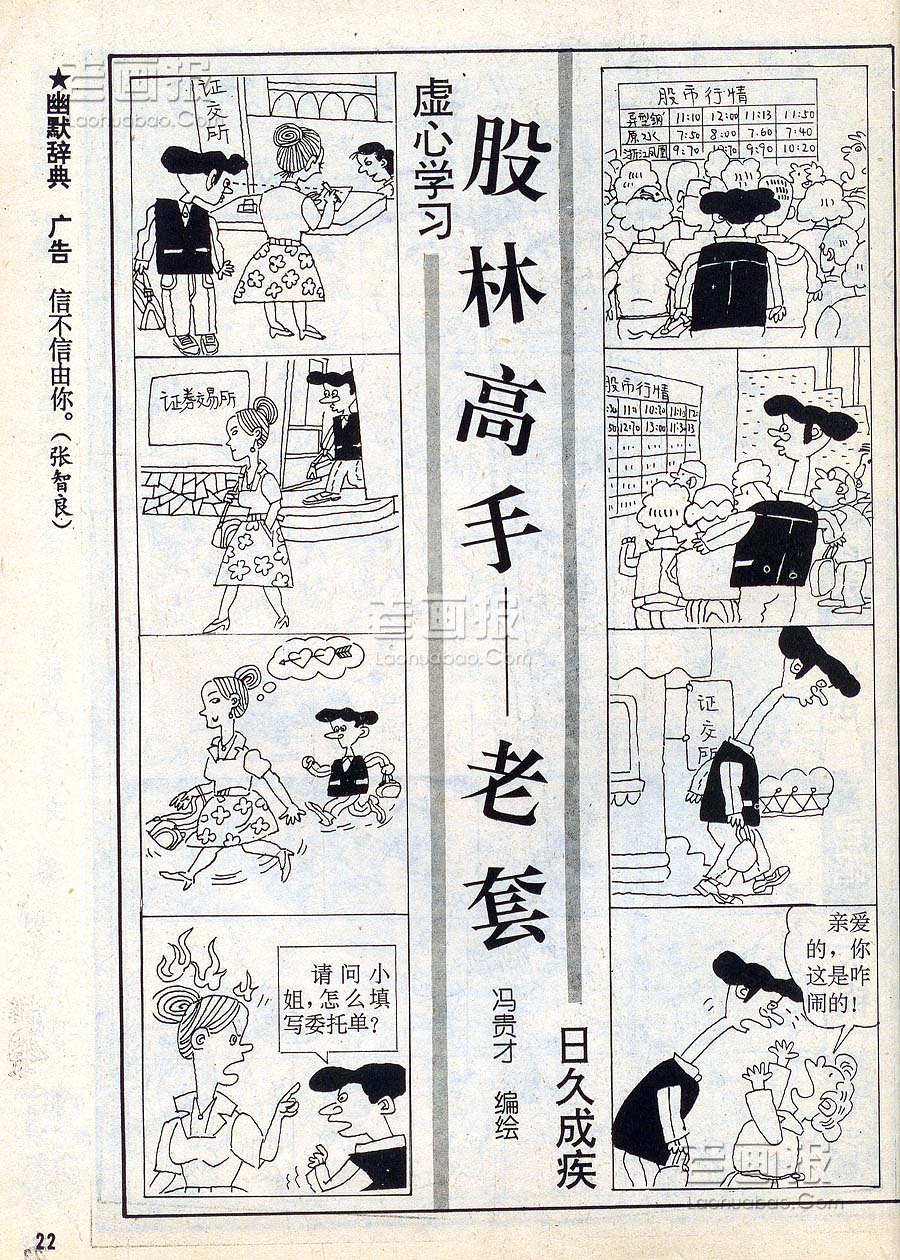 ★幽默辞典 广告 信不信由你。(张智良)
老画报
Laohuabao.Com
虚心学习
股林高手——老套
冯贵才 编绘
日久成疾
证交所
证券交易所
请问小
姐,怎么填
写委托单?
股市行情
异型钢 11:10 12:00 11:13 11:50
原水 7:50 8:00 7.60 7:40
浙江凤凰 9:70 10:70 9:90 10:20
股市行情
:30 11:1 10:20 11:10 12:
50 12:70 13:00 11:3 13
证交所
亲爱
的,你
这是咋
闹的!
老画报
Laohuabao.Com
老画报
Laohuabao.Com
22